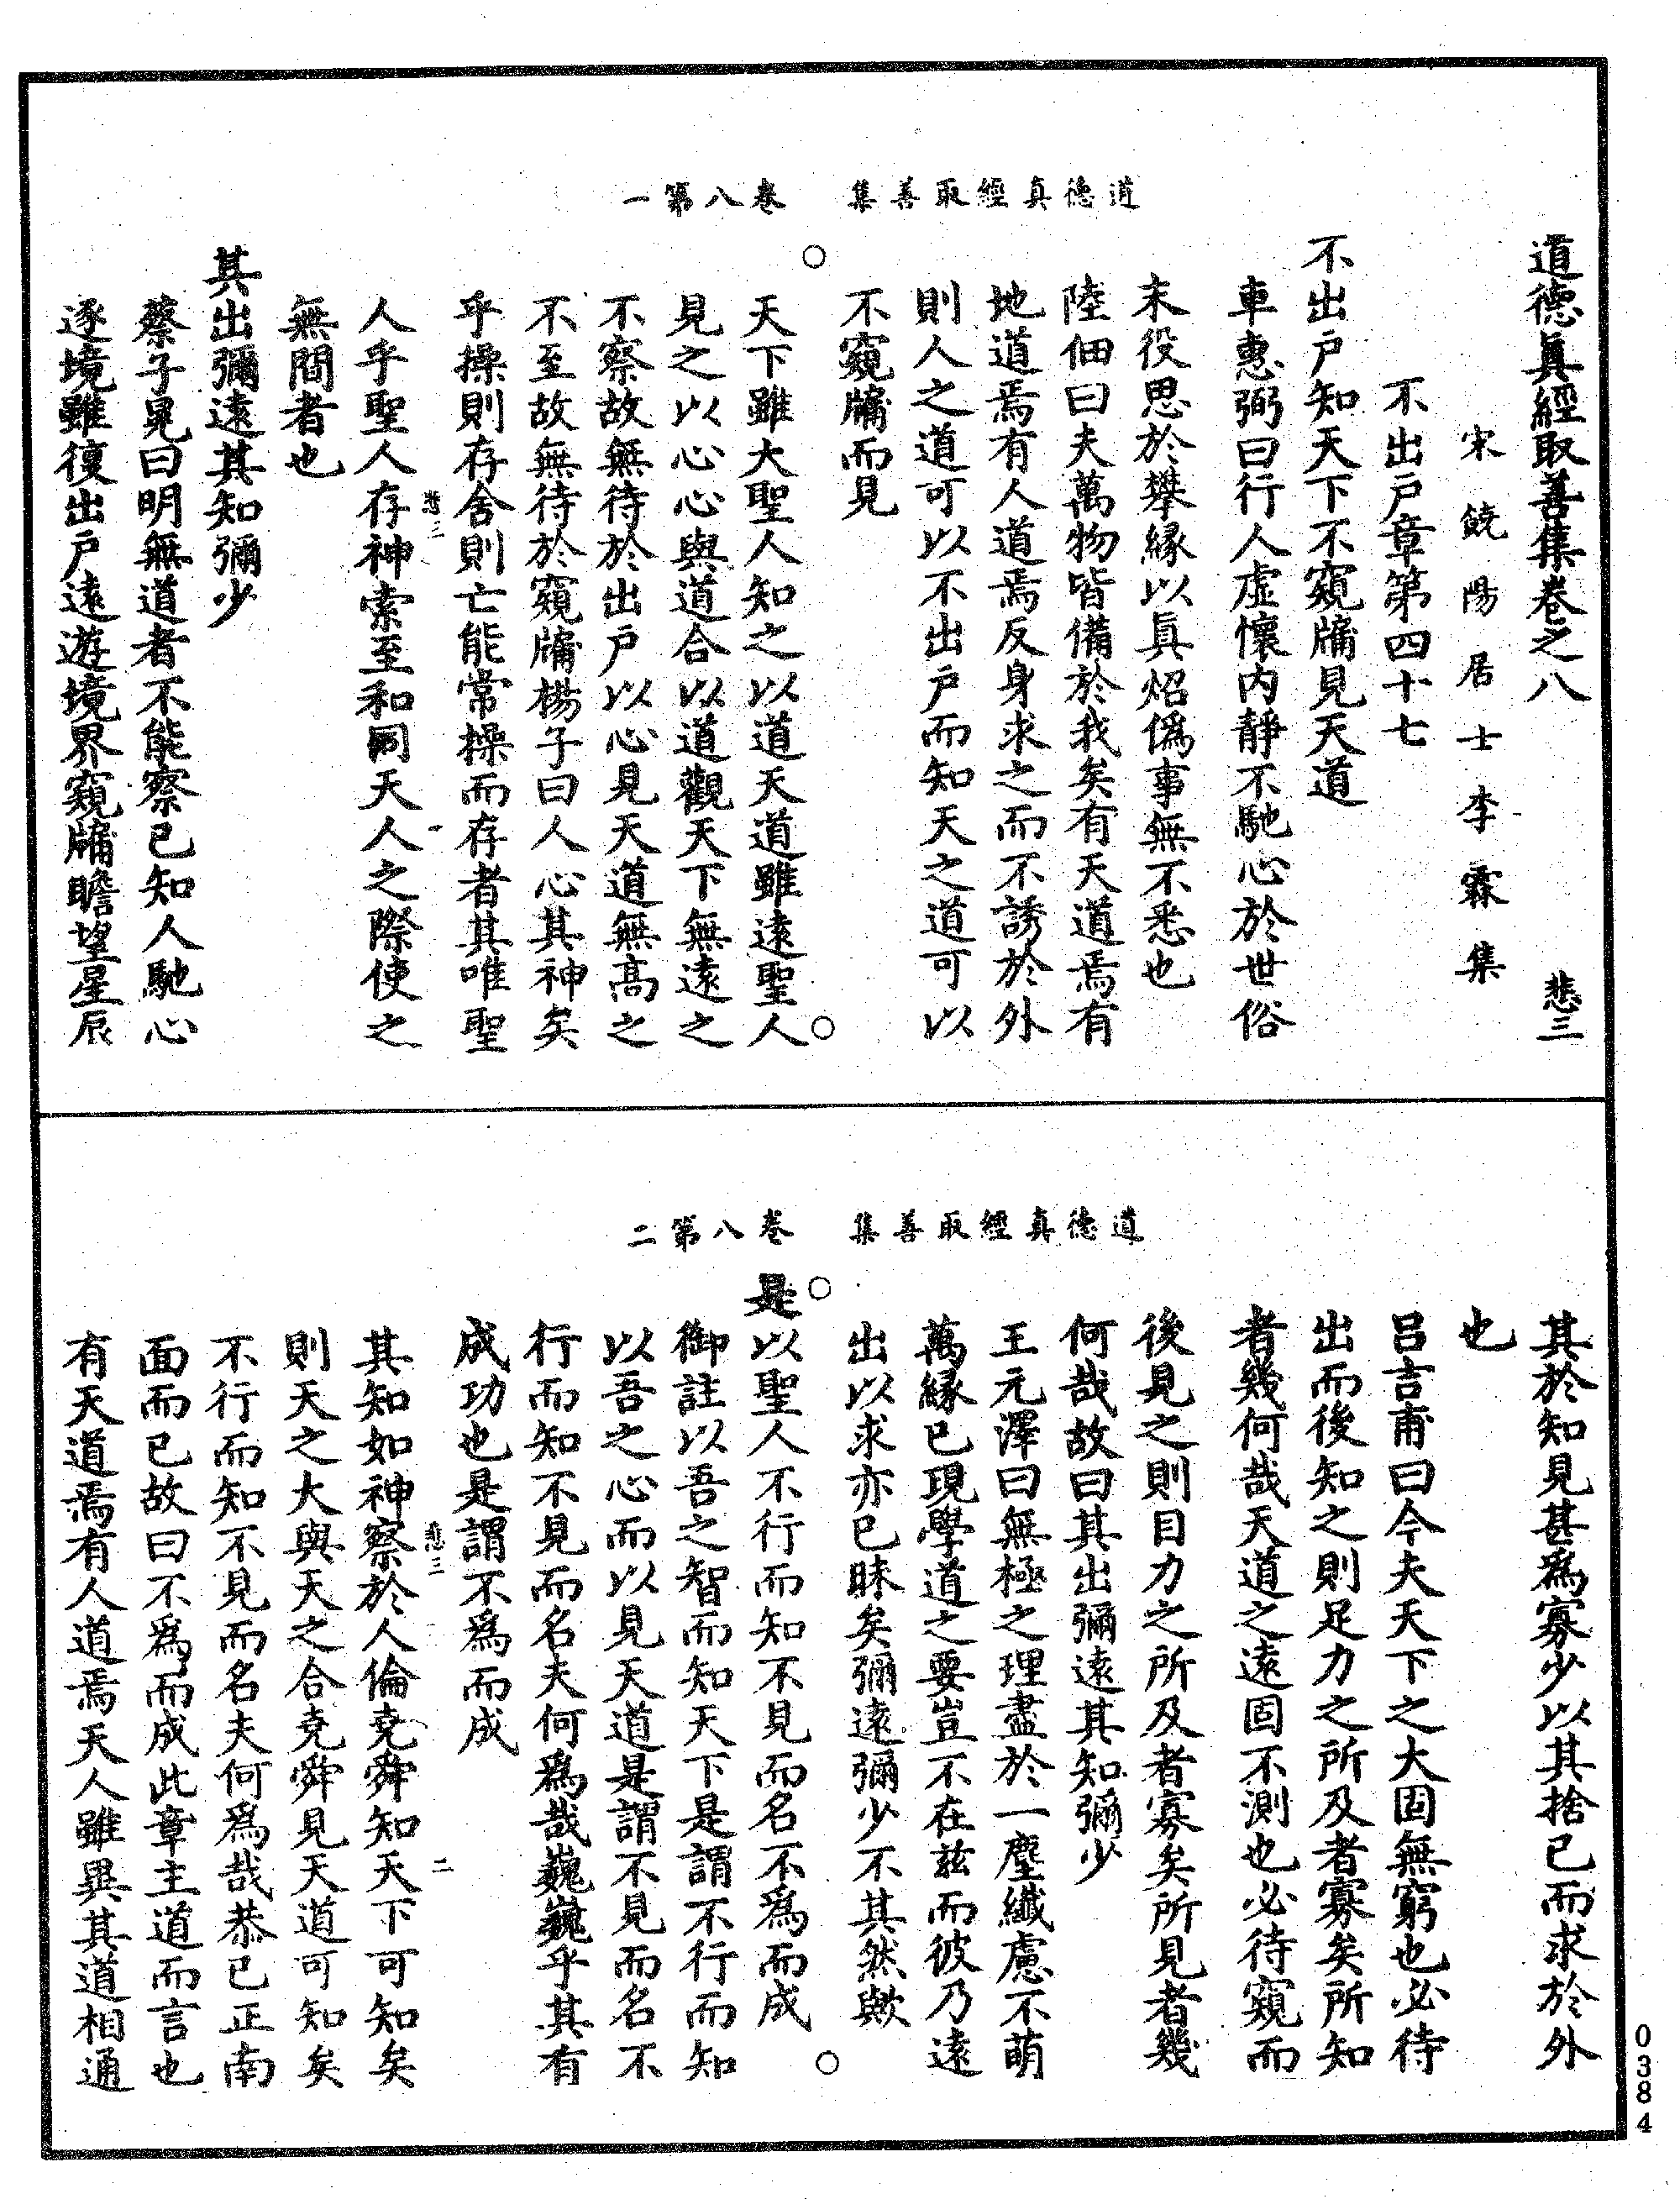 道德真經取善集　卷八第一
道德眞經取善集卷之八　悲三
宋饒陽居士李霖集
不出戶章第四十七
不出戶知天下不窺牖見天道
車惠弼曰行人虛懷內靜不馳心於世俗
末役思於攀緣以眞炤僞事無不悉也
陸佃曰夫萬物皆備於我矣有天道焉有
地道焉有人道焉反身求之而不誘於外
則人之道可以不出戶而知天之道可以
不窺牖而見
天下雖大聖人知之以道天道雖遠聖人
見之以心心與道合以道觀天下無遠之
不察故無待於出戶以心見天道無高之
不至故無待於窺牖楊子曰人心其神矣
乎操則存舍則亡能常操而存者其唯聖
悲三　一
人乎聖人存神索至和同天人之際使之
無間者也
其出彌遠其知彌少
蔡子晃曰明無道者不能察己知人馳心
逐境雖復出戶遠遊境界窺牖瞻望星辰
道德真經取善集　卷八第二
其於知見甚爲寡少以其捨己而求於外
也
呂吉甫曰今夫天下之大固無窮也必待
出而後知之則足力之所及者寡矣所知
者幾何哉天道之遠固不測也必待窺而
後見之則目力之所及者寡矣所見者幾
何哉故曰其出彌遠其知彌少
王元澤曰無極之理盡於一塵纖慮不萌
萬緣已現學道之要豈不在茲而彼乃遠
出以求亦已昧矣彌遠彌少不其然歟
是以聖人不行而知不見而名不爲而成
御註以吾之智而知天下是謂不行而知
以吾之心而以見天道是謂不見而名不
行而知不見而名夫何爲哉巍巍乎其有
成功也是謂不爲而成
悲三　二
其知如神察於人倫堯舜知天下可知矣
則天之大與天之合堯舜見天道可知矣
不行而知不見而名夫何爲哉恭己正南
面而已故曰不爲而成此章主道而言也
有天道焉有人道焉天人雖異其道相通
0384